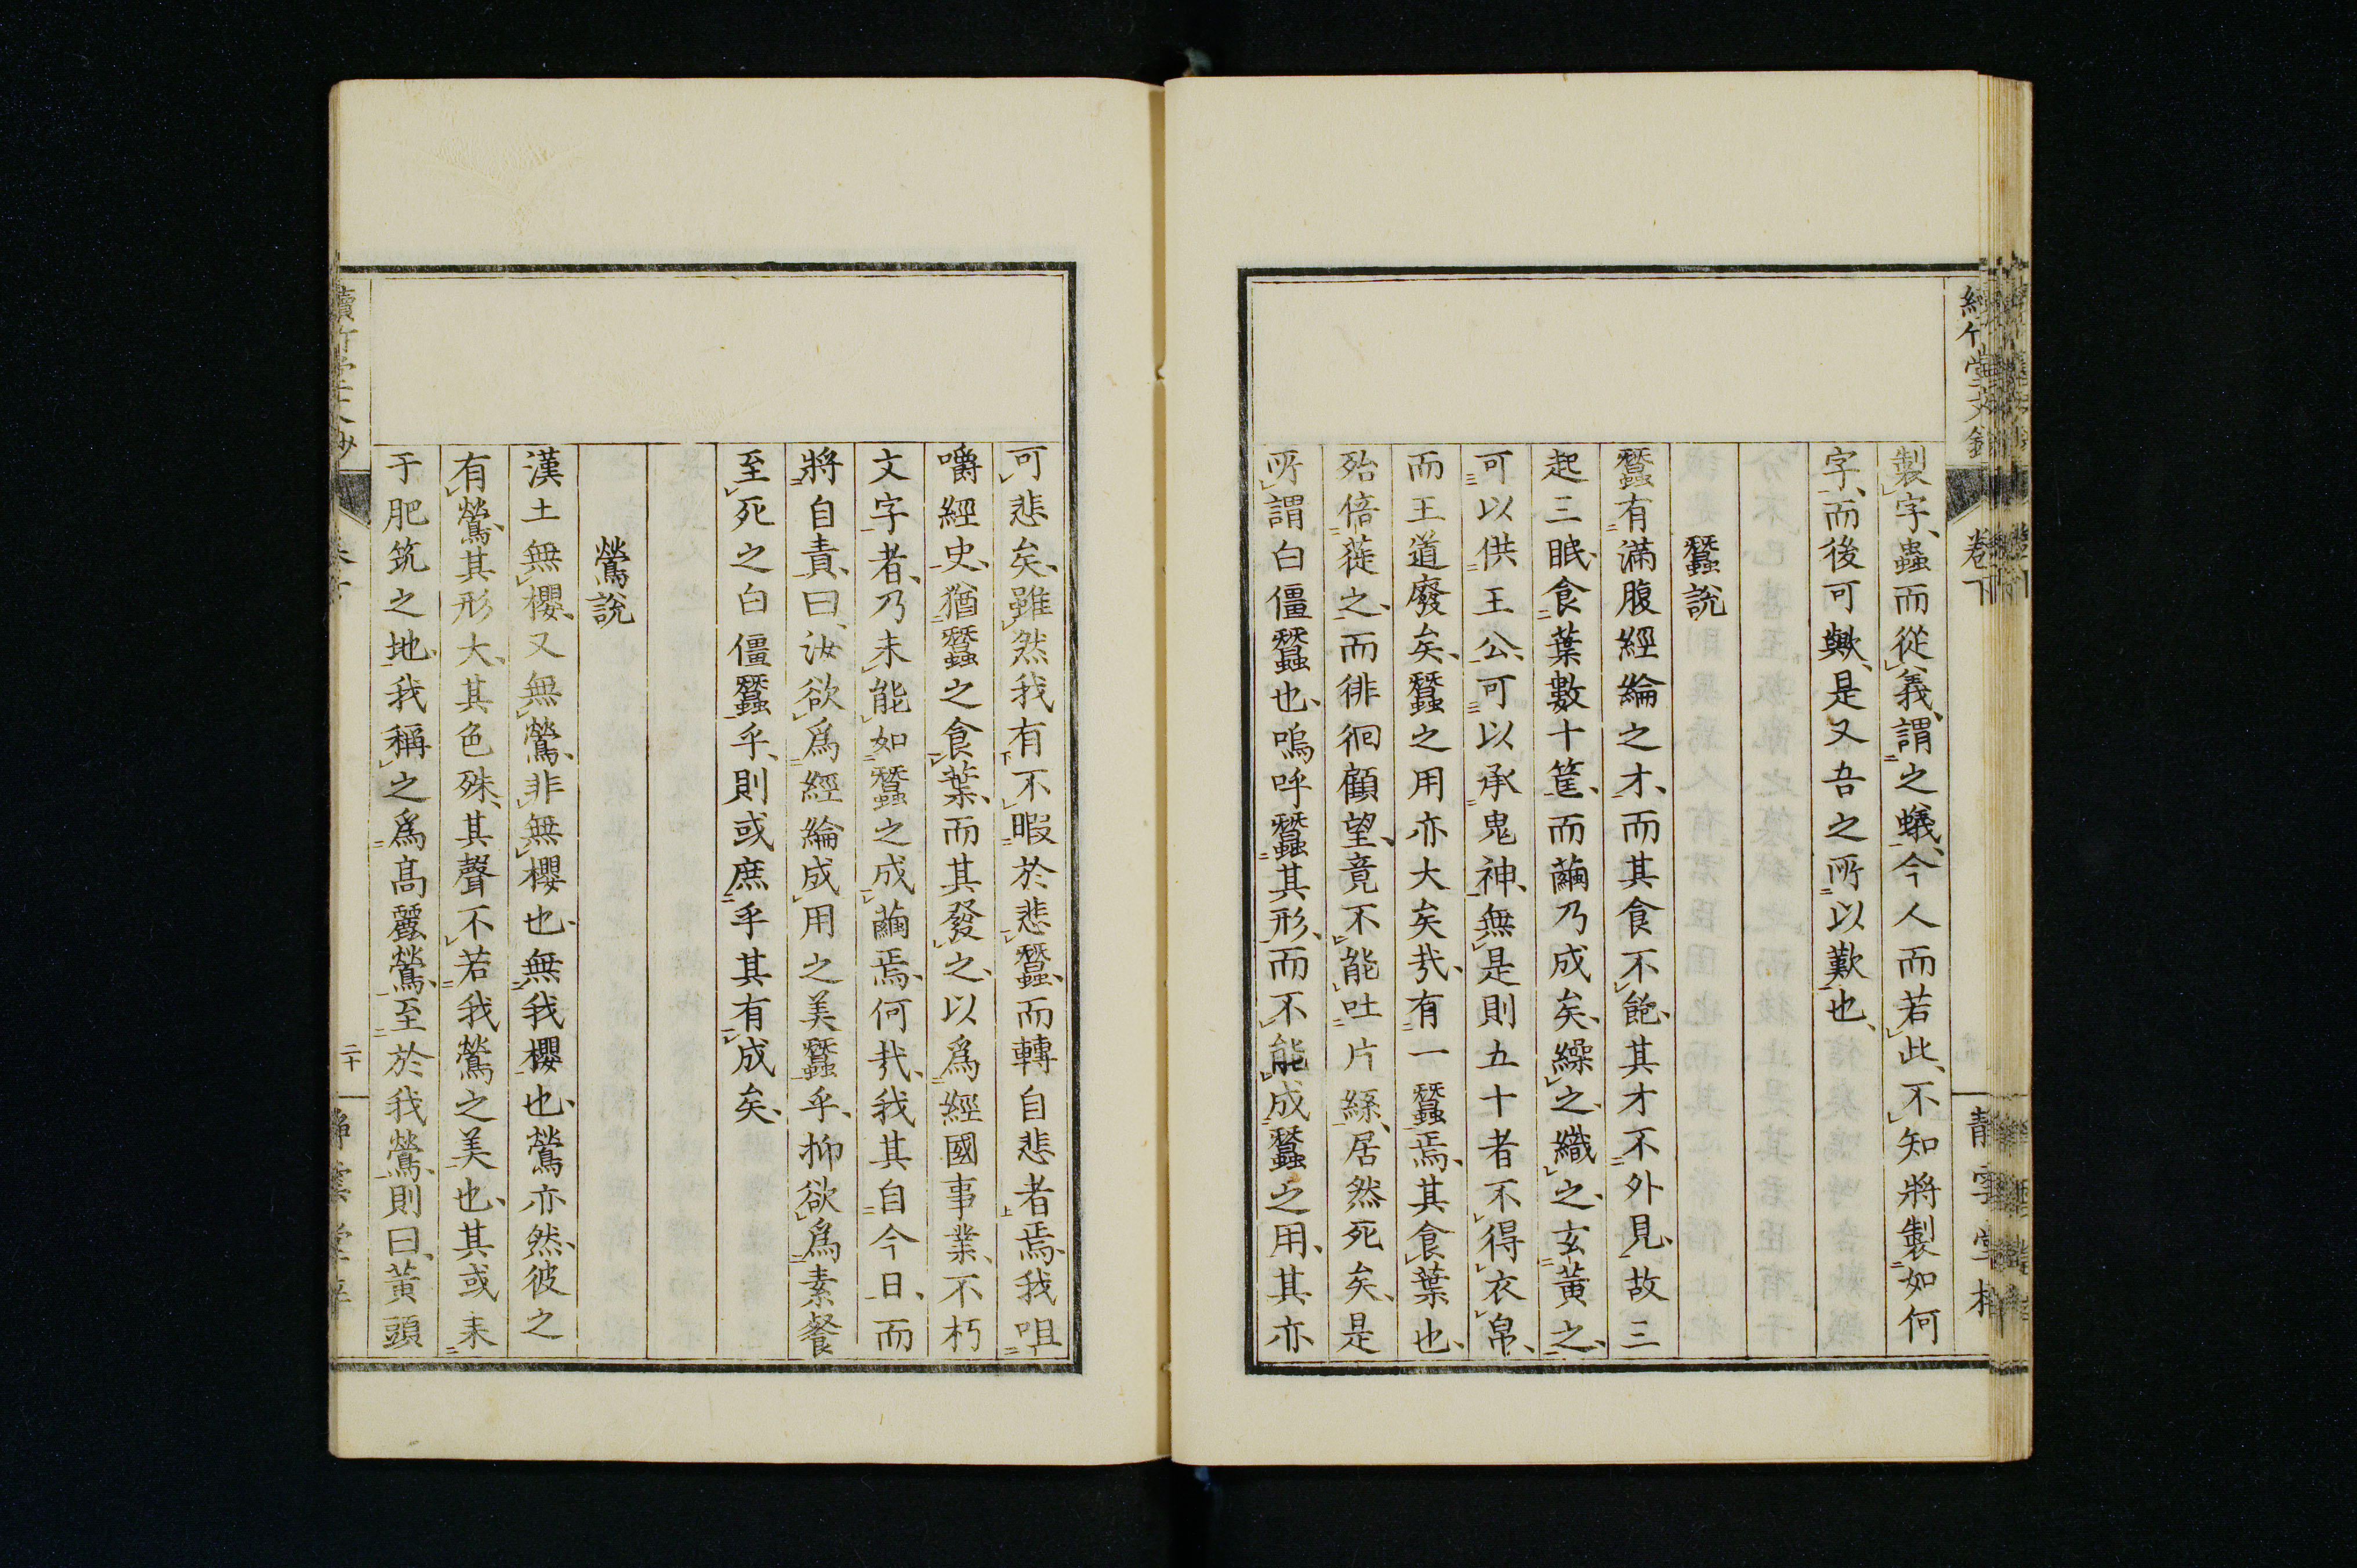 製字、蟲而從義、謂之蟻、今人而若此、不知將製如何
字、而後可歟、是又吾之所以歎也、
蠶説
蠶有滿腹經綸之才、而其食不飽、其才不外見、故三
起三眠、食葉數十筐、而繭乃成矣、繰之、織之、玄黃之、
可以供王公、可以承鬼神、無是則五十者不得衣帛、
而王道廢矣、蠶之用亦大矣哉、有一蠶焉、其食葉也、
殆倍蓰之、而徘徊顧望、竟不能吐片絲、居然死矣、是
所謂白僵蠶也、嗚呼蠶其形、而不能成蠶之用、其亦
可悲矣、雖然我有不暇於悲蠶、而轉自悲者焉、我咀
嚼經史、猶蠶之食葉、而其發之、以爲經國事業、不朽
文字者、乃未能如蠶之成繭焉、何哉、我其自今日、而
將自責、曰、汝欲爲經綸成用之美蠶乎、抑欲爲素餐
至死之白僵蠶乎、則或庶乎其有成矣、
鶯説
漢土無櫻、又無鶯、非無櫻也、無我櫻也、鶯亦然、彼之
有鶯、其形大、其色殊、其聲不若我鶯之美也、其或来
于肥筑之地、我稱之爲高麗鶯、至於我鶯、則曰、黃頭
卷下
二十